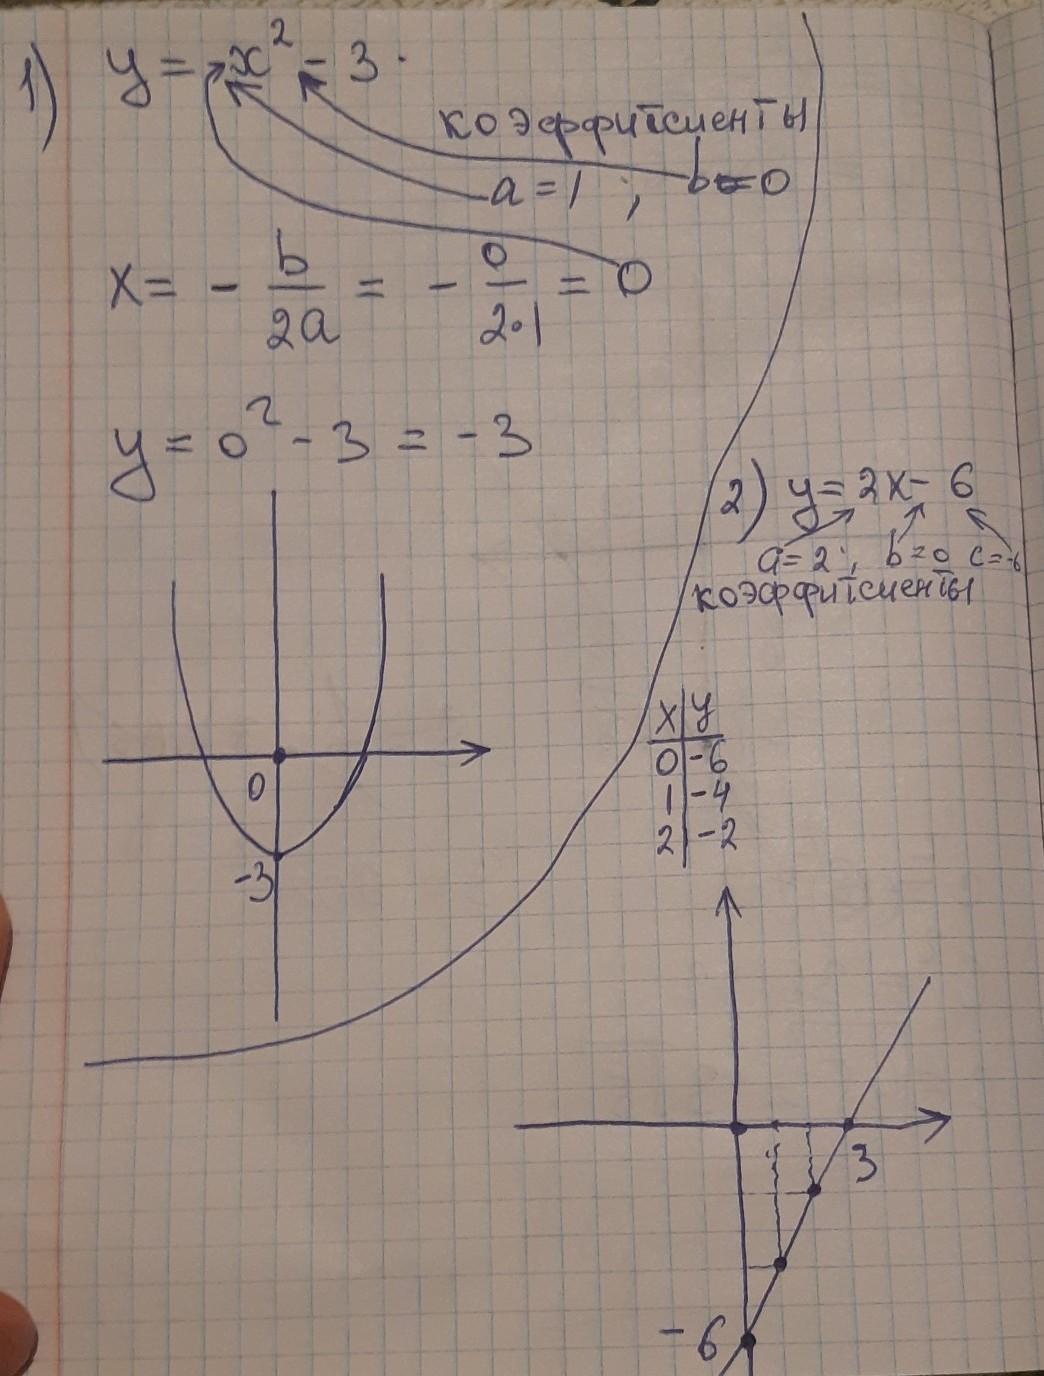 1) y = x² - 3.
коэффитсиенты
a = 1 ; b = 0
x = - b/2a = - 0/2·1 = 0
y = 0² - 3 = -3
0
-3
2) y = 2x - 6
a = 2 ; b = 0 c = -6
коэффитсиенты
x | y
0 | -6
1 | -4
2 | -2
3
-6